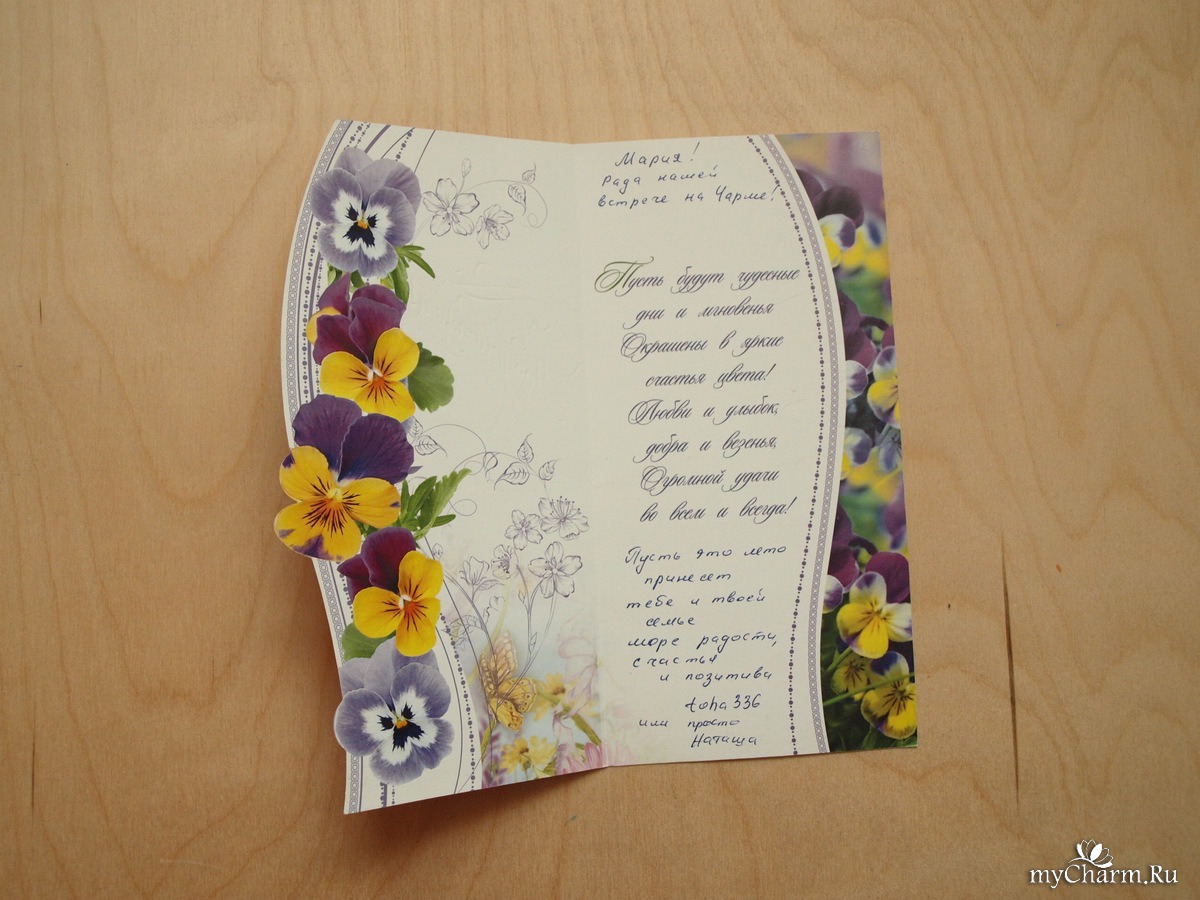 Мария!
Рада нашей
встрече на Чарме!
Пусть будут чудесные
дни и мгновенья
Окрашены в яркие
счастья цвета!
Любви и улыбок,
добра и везенья,
Огромной удачи
во всем и всегда!
Пусть это лето
принесет
тебе и твоей
семье
море радости,
счастья
и позитива
toha336
или просто
Наташа
myCharm.Ru